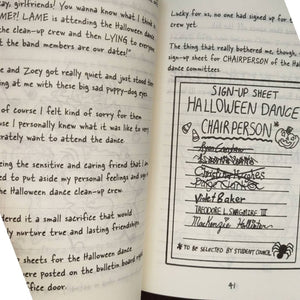 girlfriends! You wanna know what I think
LAME is attending the Halloween
clean-up crew and then LYING to
the band members are our dates!"
and Zoey got really quiet and just stood
me with these big sad puppy-dog eyes
of course I felt kind of sorry for
I personally knew what it was
want to attend the dance
the sensitive and caring friend that I
to put aside my personal feelings and
Halloween dance clean-up crew.
it a small sacrifice that would
nurture true and lasting friendships.
for the Halloween dance
were posted on the bulletin board
door.
Lucky for us, no one had signed up for
crew yet.
The thing that really bothered me, though,
sign-up sheet for CHAIRPERSON of the
dance committees.
SIGN-UP SHEET
HALLOWEEN DANCE
CHAIRPERSON
Violet Baker
THEODORE L. SWAGMIRE III
Mackenzie Hollister
*TO BE SELECTED BY STUDENT COUNCIL
41